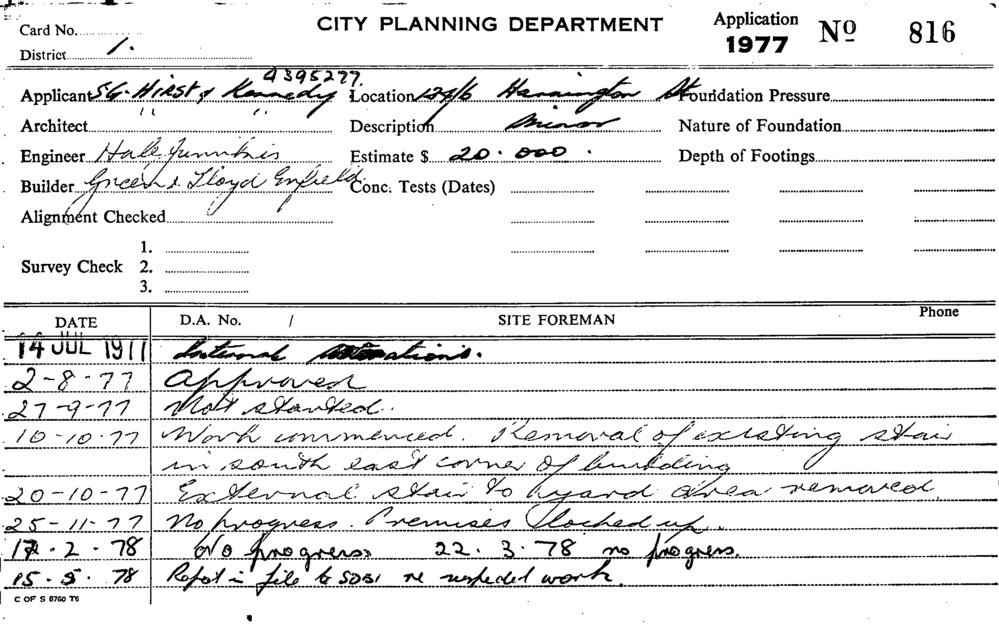 CITY PLANNING DEPARTMENT
Application
1977 Nº 816
Card No.
District 1.
4395277.
Applicant S.G. HIRST & Kennedy Location 124/6 Harrington St Foundation Pressure
Architect " " Description Minor Nature of Foundation
Engineer Estimate $ 20.000. Depth of Footings
Builder Green & Lloyd Enfield Conc. Tests (Dates)
Alignment Checked
1.
Survey Check 2.
3.
DATE D.A. No. / SITE FOREMAN Phone
14 JUL 1977 Internal alterations.
2-8-77 Approved
27-9-77 Not started.
10-10-77 Work commenced. Removal of existing stair
in south east corner of building
20-10-77 External stair to yard area removed.
25-11-77 No progress. Premises locked up.
17.2.78 No progress 22.3.78 no progress.
15.5.78 Report in file to SDBI re work.
C OF S 6760 T6